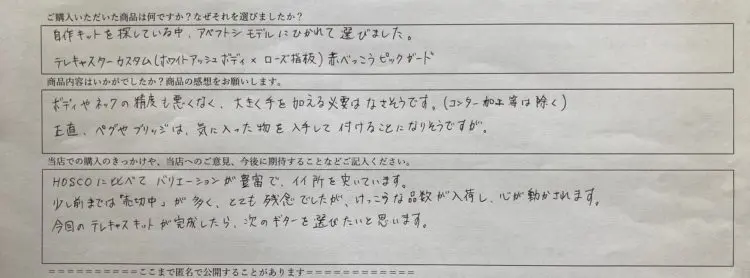 ご購入いただいた商品は何ですか？なぜそれを選びましたか？
自作キットを探している中、アベフトシモデルにひかれて選びました。
テレキャスターカスタム(ホワイトアッシュボディ×ローズ指板)赤べっこうピックガード
商品内容はいかがでしたか？商品の感想をお願いします。
ボディやネックの精度も悪くなく、大きく手を加える必要はなさそうです。(コンター加工等は除く)
正直、ペグやブリッジは、気に入った物を入手して付けることになりそうですが。
当店での購入のきっかけや、当店へのご意見、今後に期待することなどご記入ください。
HOSCOに比べてバリエーションが豊富で、イイ所を突いています。
少し前までは"売切中"が多く、とても残念でしたが、けっこうな品数が入荷し、心が動かされます。
今回のテレキャスキットが完成したら、次のギターを選びたいと思います。
==========ここまで匿名で公開することがあります============